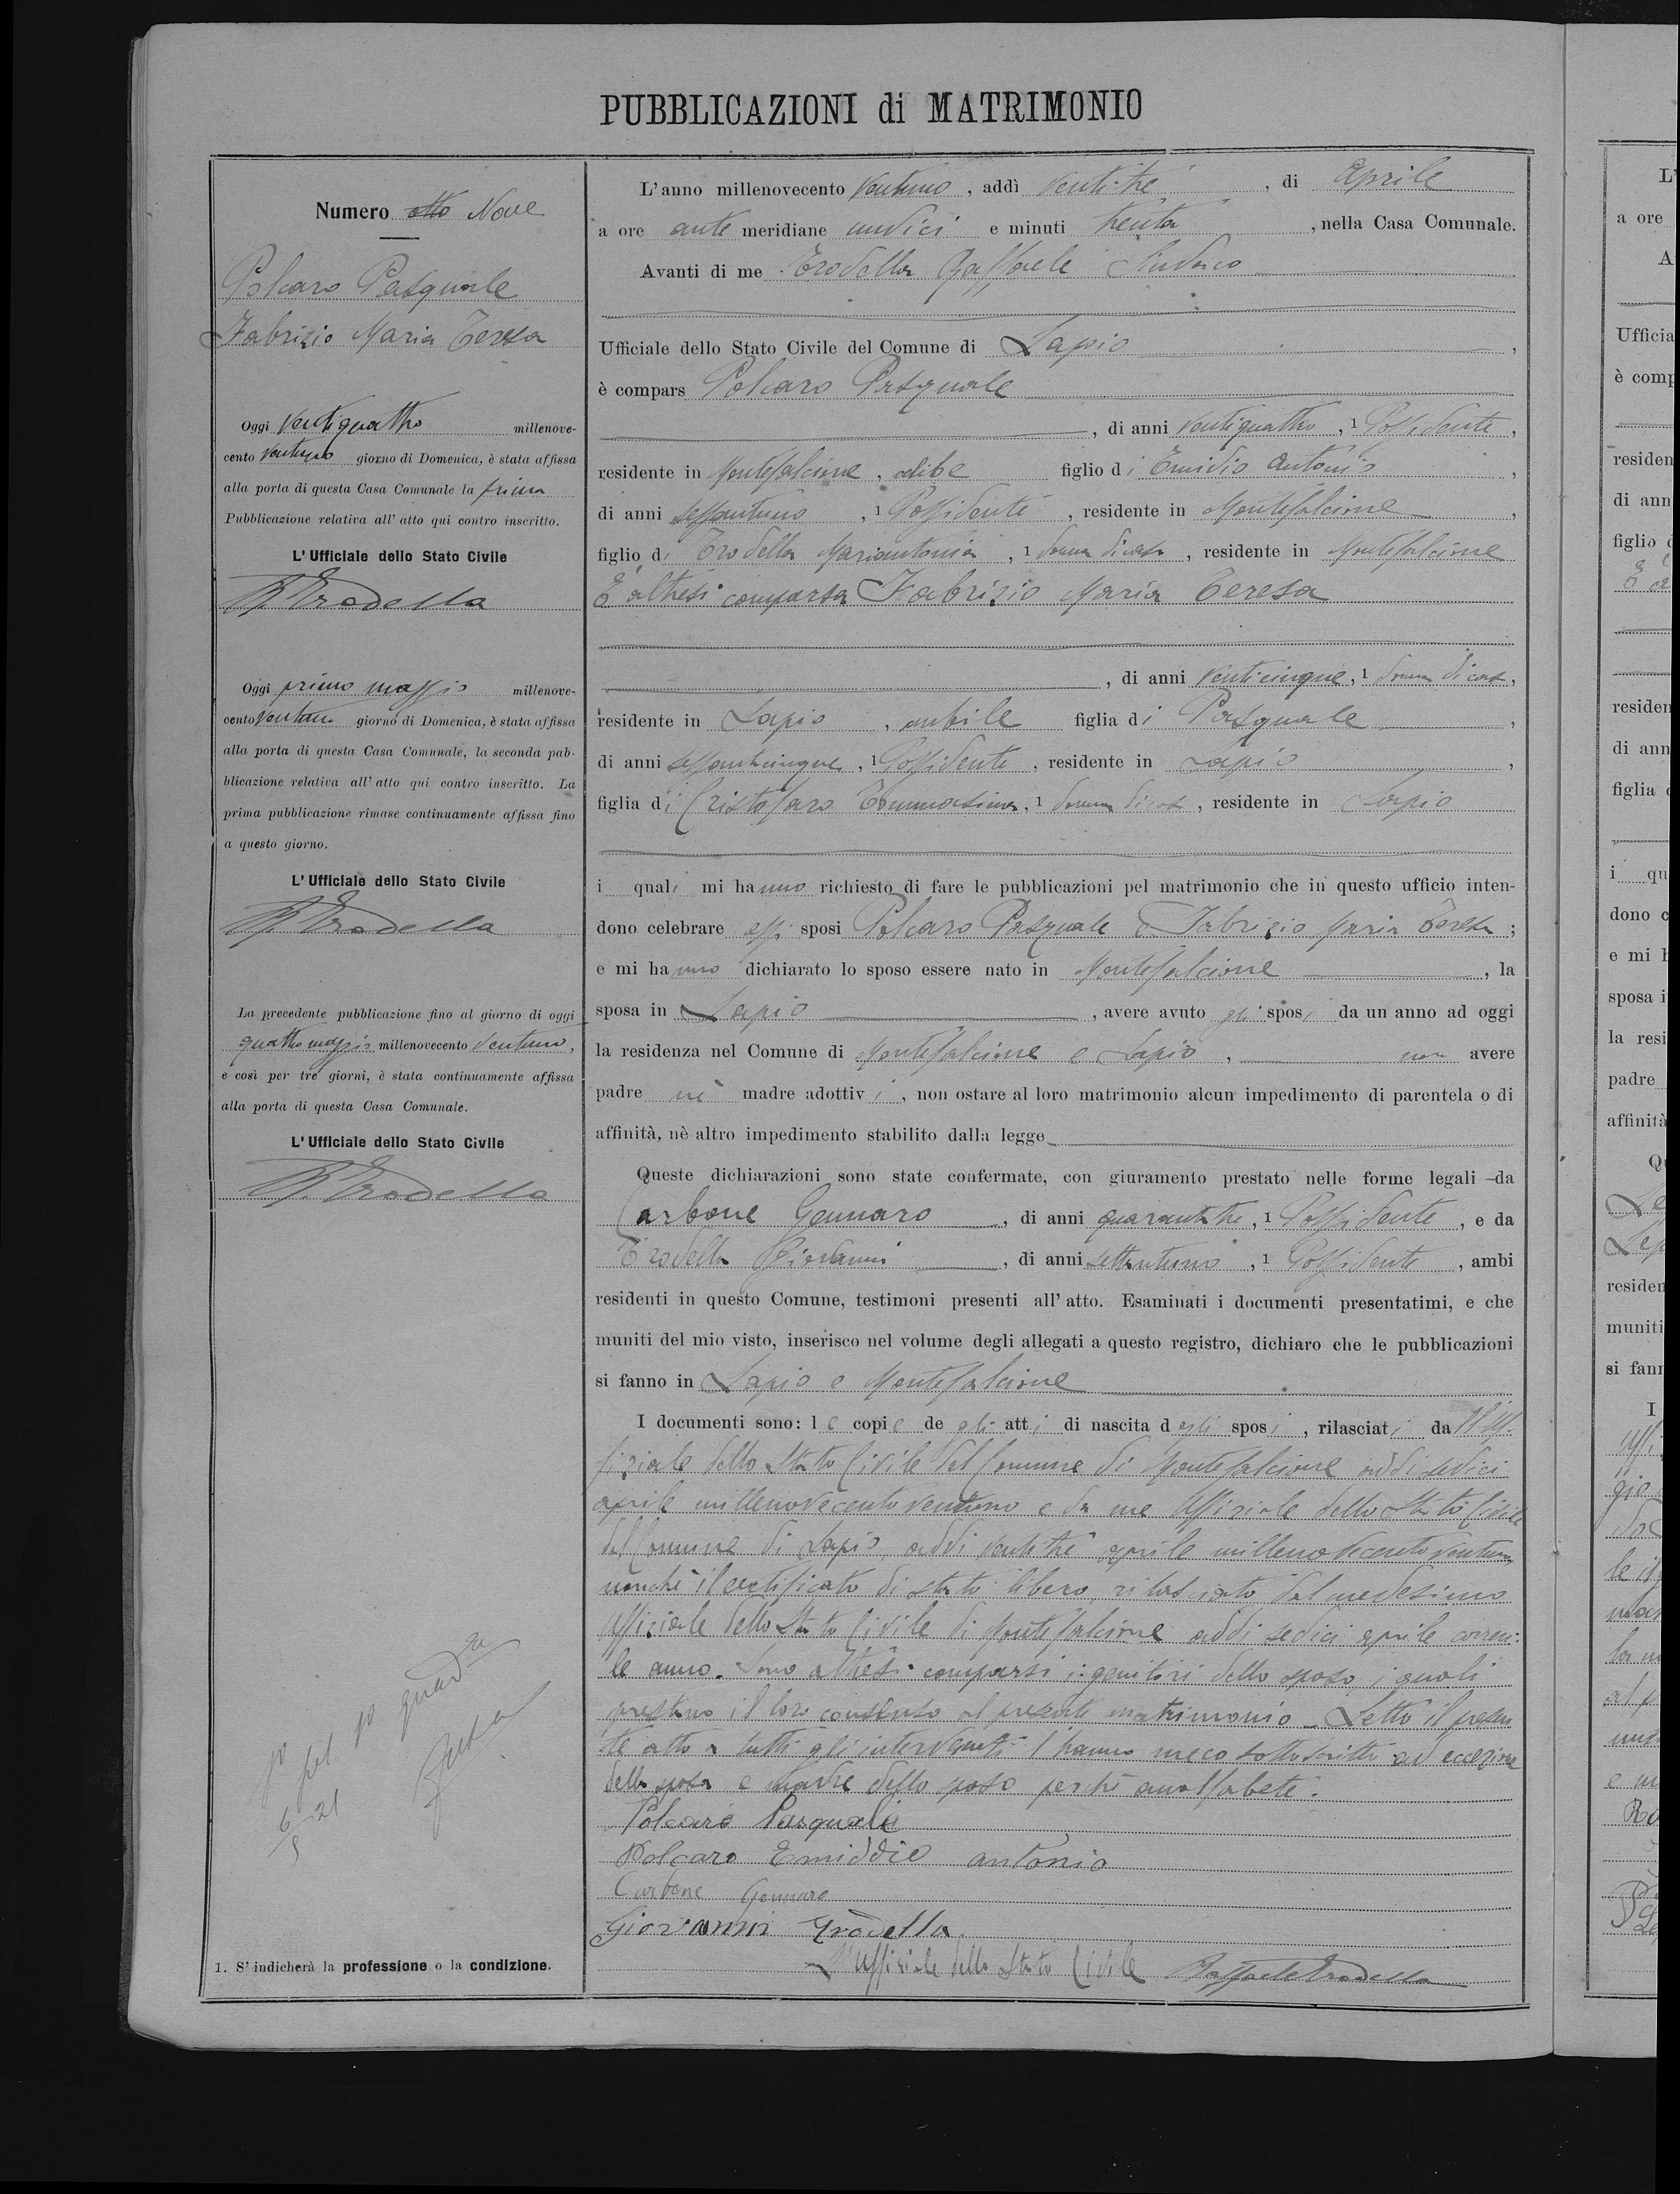 PUBBLICAZIONI di MATRIMONIO
Numero otto Nove
Polcaro Pasquale
Fabrizio Maria Teresa
Oggi ventiquattro millenove-
cento ventuno giorno di Domenica, è stata affissa
alla porta di questa Casa Comunale la prima
Pubblicazione relativa all' atto qui contro inscritto.
L' Ufficiale dello Stato Civile
R. Trodella
Oggi primo maggio millenove-
cento ventuno giorno di Domenica, è stata affissa
alla porta di questa Casa Comunale, la seconda pub-
blicazione relativa all' atto qui contro inscritto. La
prima pubblicazione rimase continuamente affissa fino
a questo giorno.
L' Ufficiale dello Stato Civile
R. Trodella
La precedente pubblicazione fino al giorno di oggi
quattro maggio millenovecento ventuno,
e così per tre giorni, è stata continuamente affissa
alla porta di questa Casa Comunale.
L' Ufficiale dello Stato Civile
R. Trodella
6/5 21
1. S' indicherà la professione o la condizione.
L' anno millenovecento ventuno, addì venti-tre, di Aprile
a ore ante meridiane undici e minuti trenta, nella Casa Comunale.
Avanti di me Trodella Raffaele Sindaco
Ufficiale dello Stato Civile del Comune di Lapio,
è compars Polcaro Pasquale
, di anni ventiquattro, 1 Possidente,
residente in Montefalcione, celibe figlio di Emidio Antonio,
di anni sessantuno, 1 Possidente, residente in Montefalcione,
figlio di Trodella Mariantonia, 1 donna di casa, residente in Montefalcione
È altresì comparsa Fabrizio Maria Teresa
, di anni venticinque, 1 donna di casa,
residente in Lapio, nubile figlia di Pasquale,
di anni sessanticinque, 1 Possidente, residente in Lapio,
figlia di Cristofaro Tommasina, 1 donna di casa, residente in Lapio
i quali mi hanno richiesto di fare le pubblicazioni pel matrimonio che in questo ufficio inten-
dono celebrare essi sposi Polcaro Pasquale e Fabrizio Maria Teresa;
e mi hanno dichiarato lo sposo essere nato in Montefalcione, la
sposa in Lapio, avere avuto gli sposi da un anno ad oggi
la residenza nel Comune di Montefalcione e Lapio, non avere
padre nè madre adottivi, non ostare al loro matrimonio alcun impedimento di parentela o di
affinità, nè altro impedimento stabilito dalla legge
Queste dichiarazioni sono state confermate, con giuramento prestato nelle forme legali da
Carbone Gennaro, di anni quarantatre, 1 Possidente, e da
Trodella Giovanni, di anni settantuno, 1 Possidente, ambi
residenti in questo Comune, testimoni presenti all' atto. Esaminati i documenti presentatimi, e che
muniti del mio visto, inserisco nel volume degli allegati a questo registro, dichiaro che le pubblicazioni
si fanno in Lapio e Montefalcione
I documenti sono: le copie degli atti di nascita degli sposi, rilasciati dall'Uf-
fiziale dello Stato Civile del Comune di Montefalcione addi sedici
aprile millenovecentoventuno e da me Uffiziale dello Stato Civile
del Comune di Lapio, addi ventitre aprile millenovecentoventuno
nonchè il certificato di stato libero, rilasciato dal medesimo
Uffiziale dello Stato Civile di Montefalcione addi sedici aprile corren-
te anno. Sono altresì comparsi i genitori dello sposo, i quali
prestano il loro consenso al presente matrimonio. Letto il presen
te atto a tutti gli intervenuti l'hanno meco sottoscritto ad eccezione
della sposa e madre dello sposo perchè analfabete.
Polcaro Pasquale
Polcaro Emiddio antonio
Carbone Gennaro
Giovanni Trodella
L'Uffiziale dello Stato Civile Raffaele Trodella